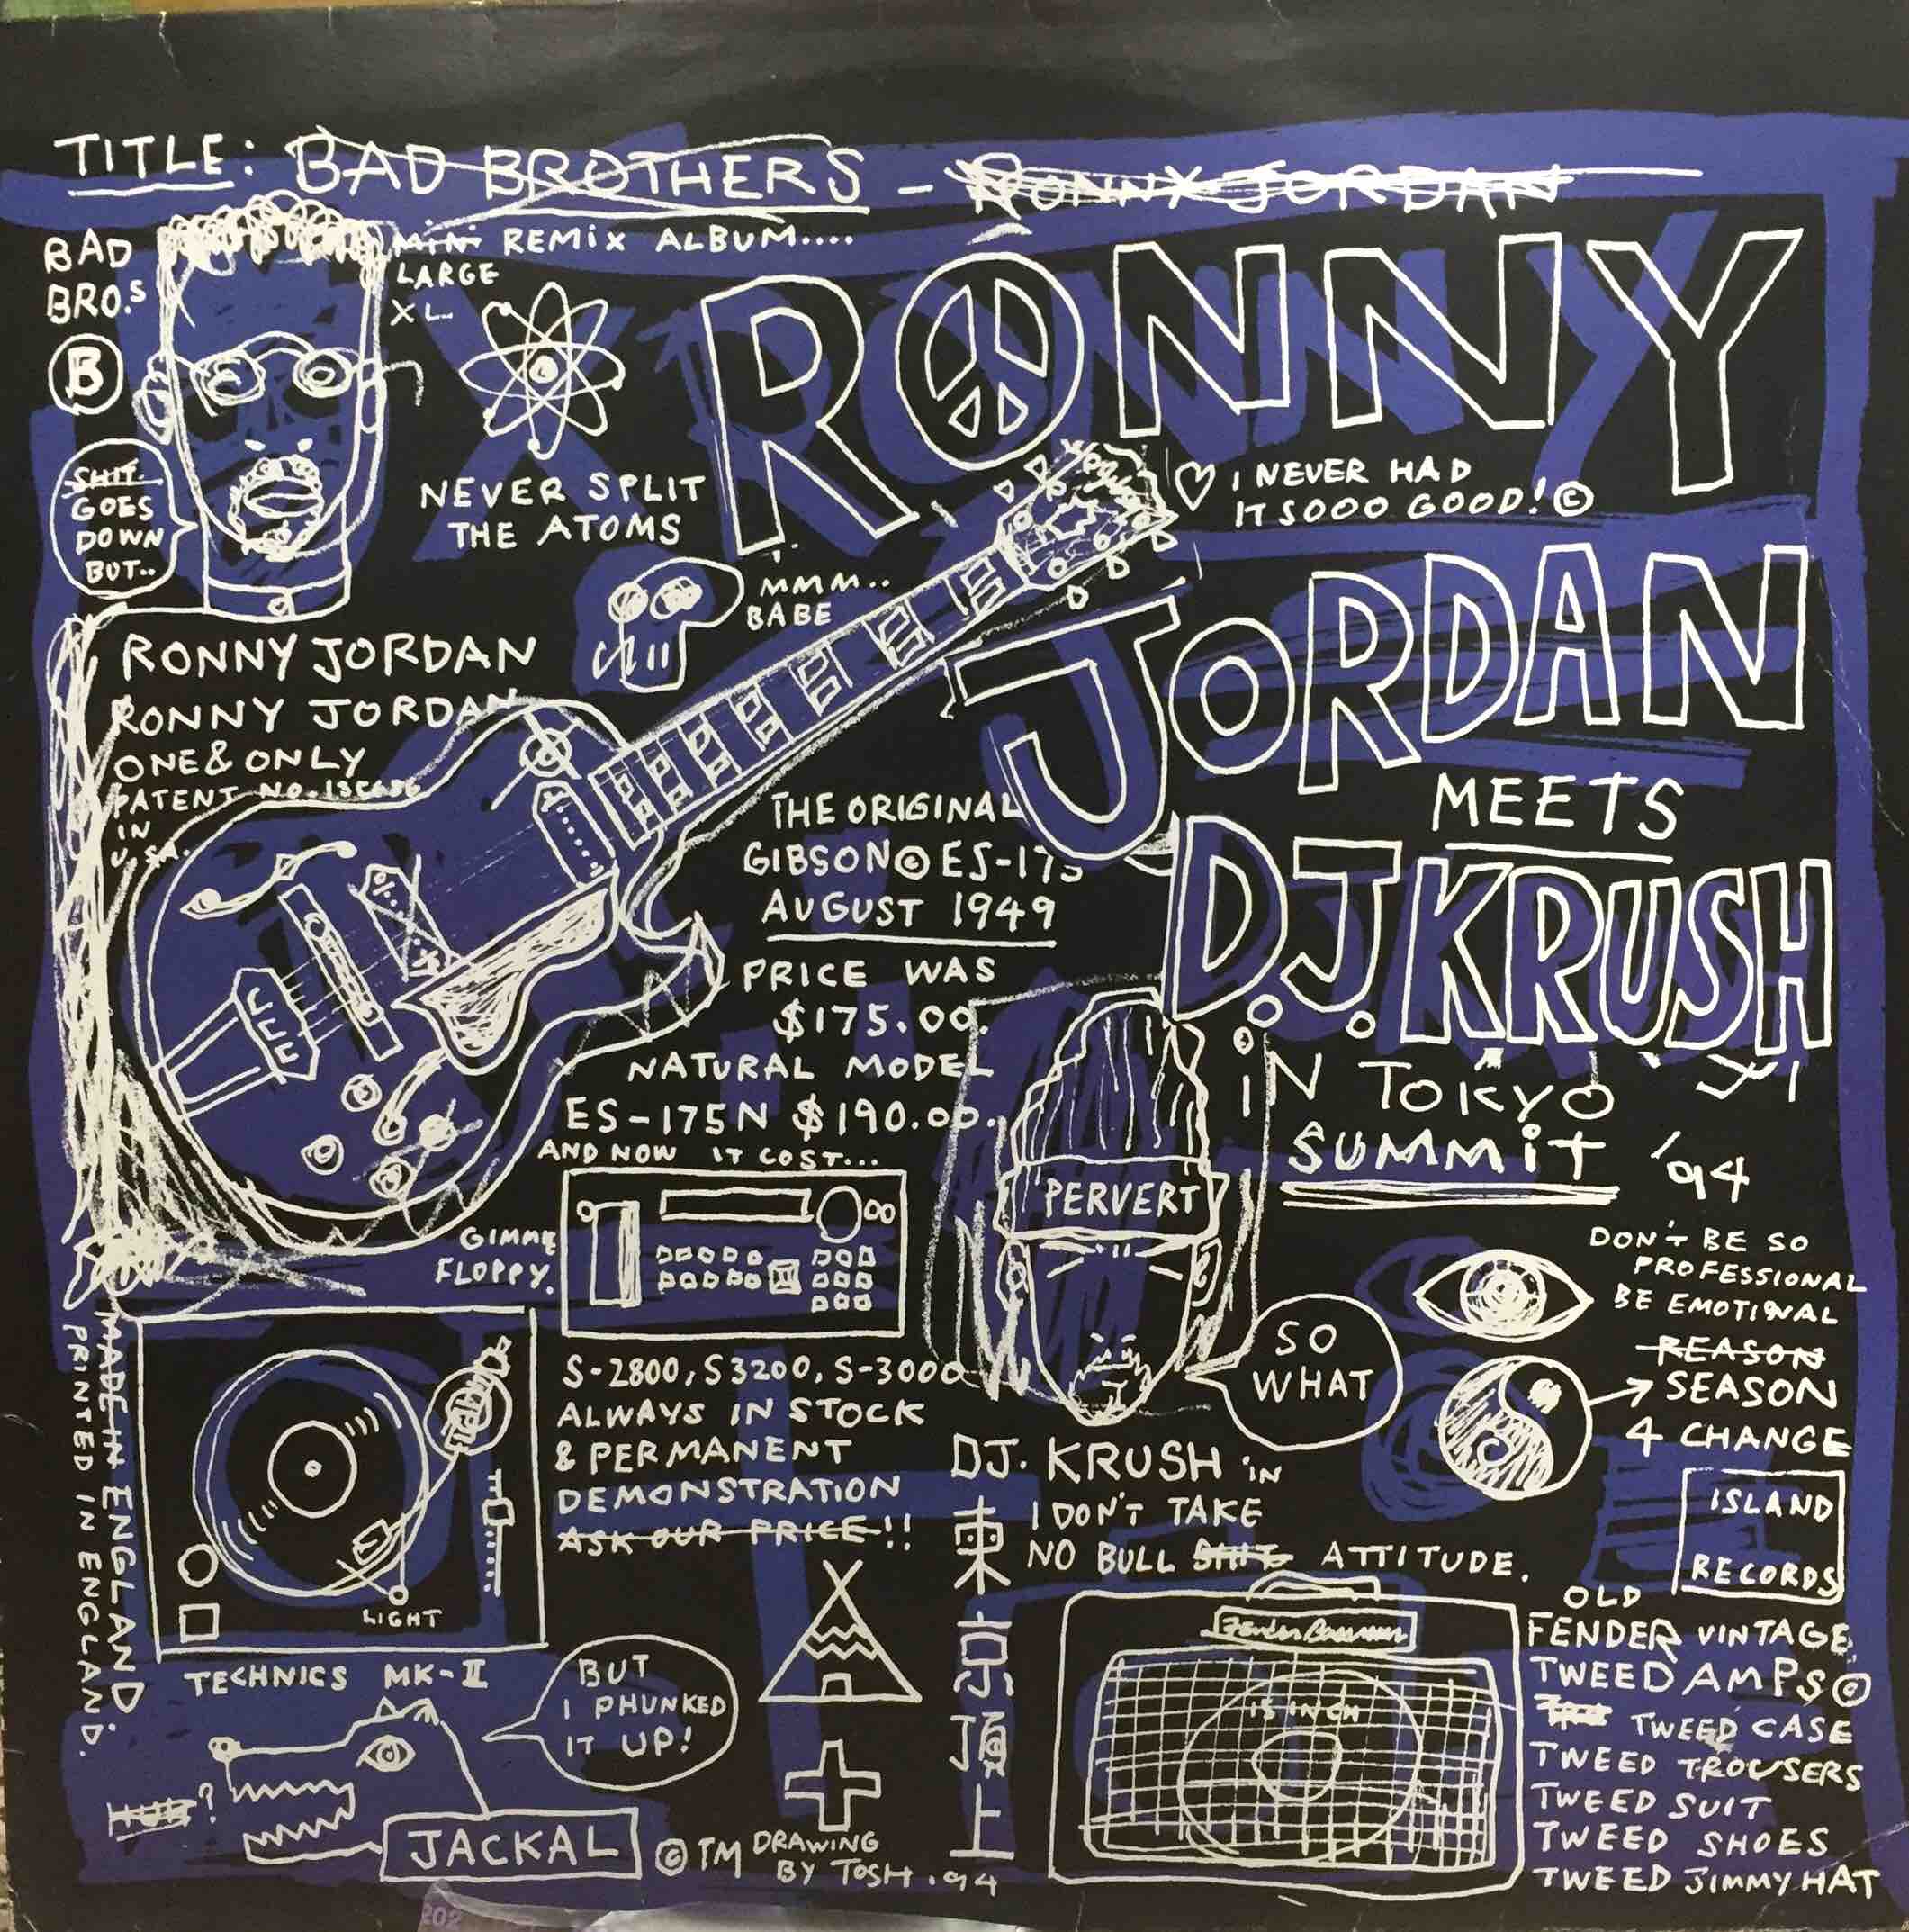 TITLE: BAD BROTHERS - RONNY JORDAN
MINI REMIX ALBUM....
LARGE
XL
BAD
BRO.S
B
RONNY
SHIT
GOES
DOWN
BUT..
NEVER SPLIT
THE ATOMS
I NEVER HAD
IT SOOO GOOD! ©
MMM..
BABE
JORDAN
RONNY JORDAN
RONNY JORDAN
ONE & ONLY
PATENT NO.
IN
U.S.A.
MEETS
D.J. KRUSH
THE ORIGINAL
GIBSON © ES-175
AUGUST 1949
PRICE WAS
$175.00.
NATURAL MODEL
ES-175N $190.00.
AND NOW IT COST...
IN TOKYO
SUMMIT '94
PERVERT
SO
WHAT
GIMME
FLOPPY.
S-2800, S3200, S-3000
ALWAYS IN STOCK
& PERMANENT
DEMONSTRATION
ASK OUR PRICE!!
DON'T BE SO
PROFESSIONAL
BE EMOTIONAL
REASON
SEASON
4 CHANGE
MADE IN ENGLAND.
PRINTED IN ENGLAND.
LIGHT
TECHNICS MK-II
DJ. KRUSH IN
東京頂上
I DON'T TAKE
NO BULL SHIT ATTITUDE.
ISLAND
RECORDS
Fender Bassman
15 INCH
OLD
FENDER VINTAGE
TWEED AMPS ©
TWEED CASE
TWEED TROUSERS
TWEED SUIT
TWEED SHOES
TWEED JIMMY HAT
BUT
I PHUNKED
IT UP!
JACKAL © TM DRAWING
BY TOSH .94
202